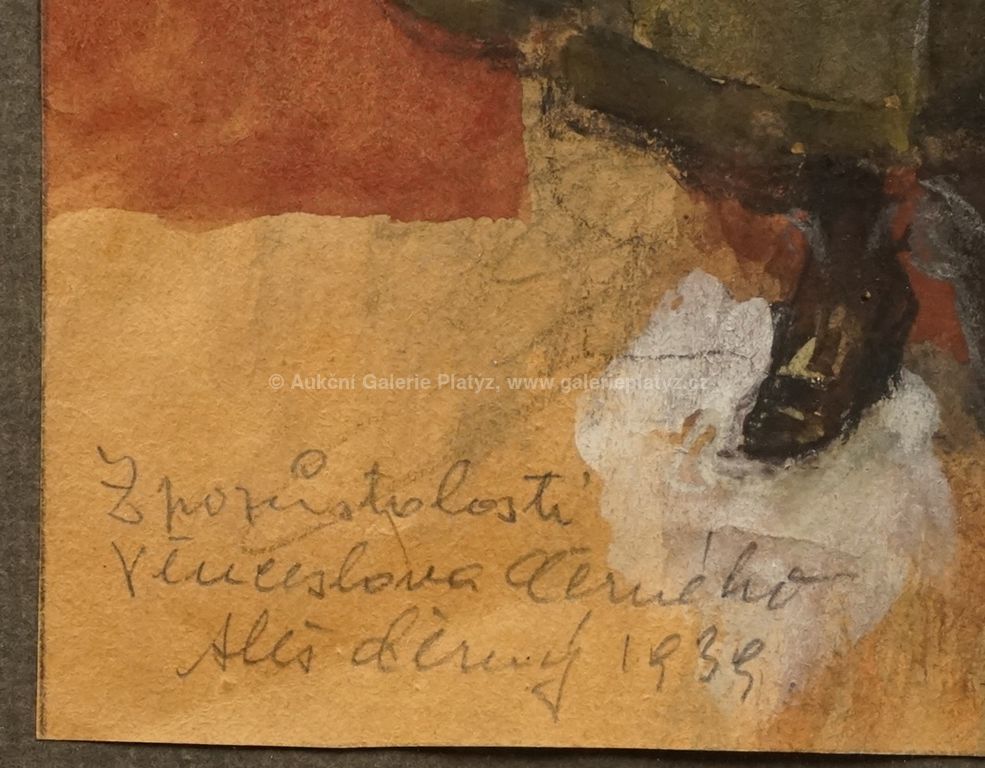 © Aukční Galerie Platyz, www.galerieplatyz.cz
Z pozůstalosti
Věnceslava Černého
Aleš Černý 1939.